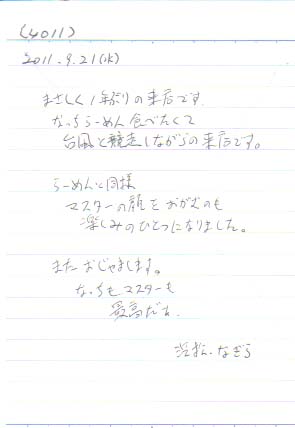 (4011)
2011.9.21(水)
まさしく1年ぶりの来店です
なっちらーめん食べたくて
台風と競走しながらの来店です。
らーめんと同様
マスターの顔をおがむのも
楽しみのひとつになりました。
またおじゃまします。
なっちもマスターも
最高だね
浜松・なぎら